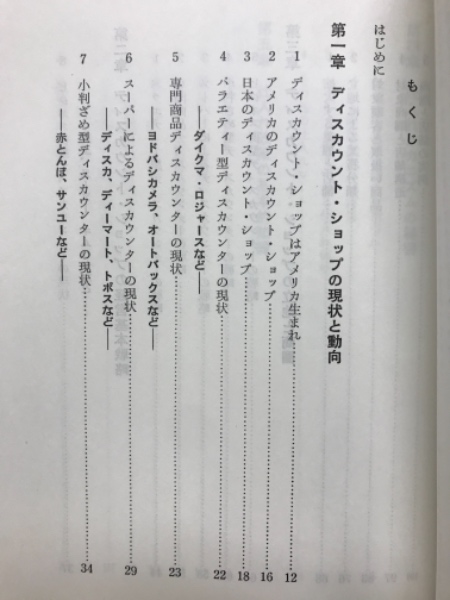 もくじ
はじめに
第一章 ディスカウント・ショップの現状と動向
1 ディスカウント・ショップはアメリカ生まれ 12
2 アメリカのディスカウント・ショップ 16
3 日本のディスカウント・ショップ 18
4 バラエティー型ディスカウンターの現状 22
──ダイクマ・ロジャースなど──
5 専門商品ディスカウンターの現状 23
──ヨドバシカメラ、オートバックスなど──
6 スーパーによるディスカウンターの現状 29
──ディスカ、ディーマート、トポスなど──
7 小判ざめ型ディスカウンターの現状 34
──赤とんぼ、サンユーなど──